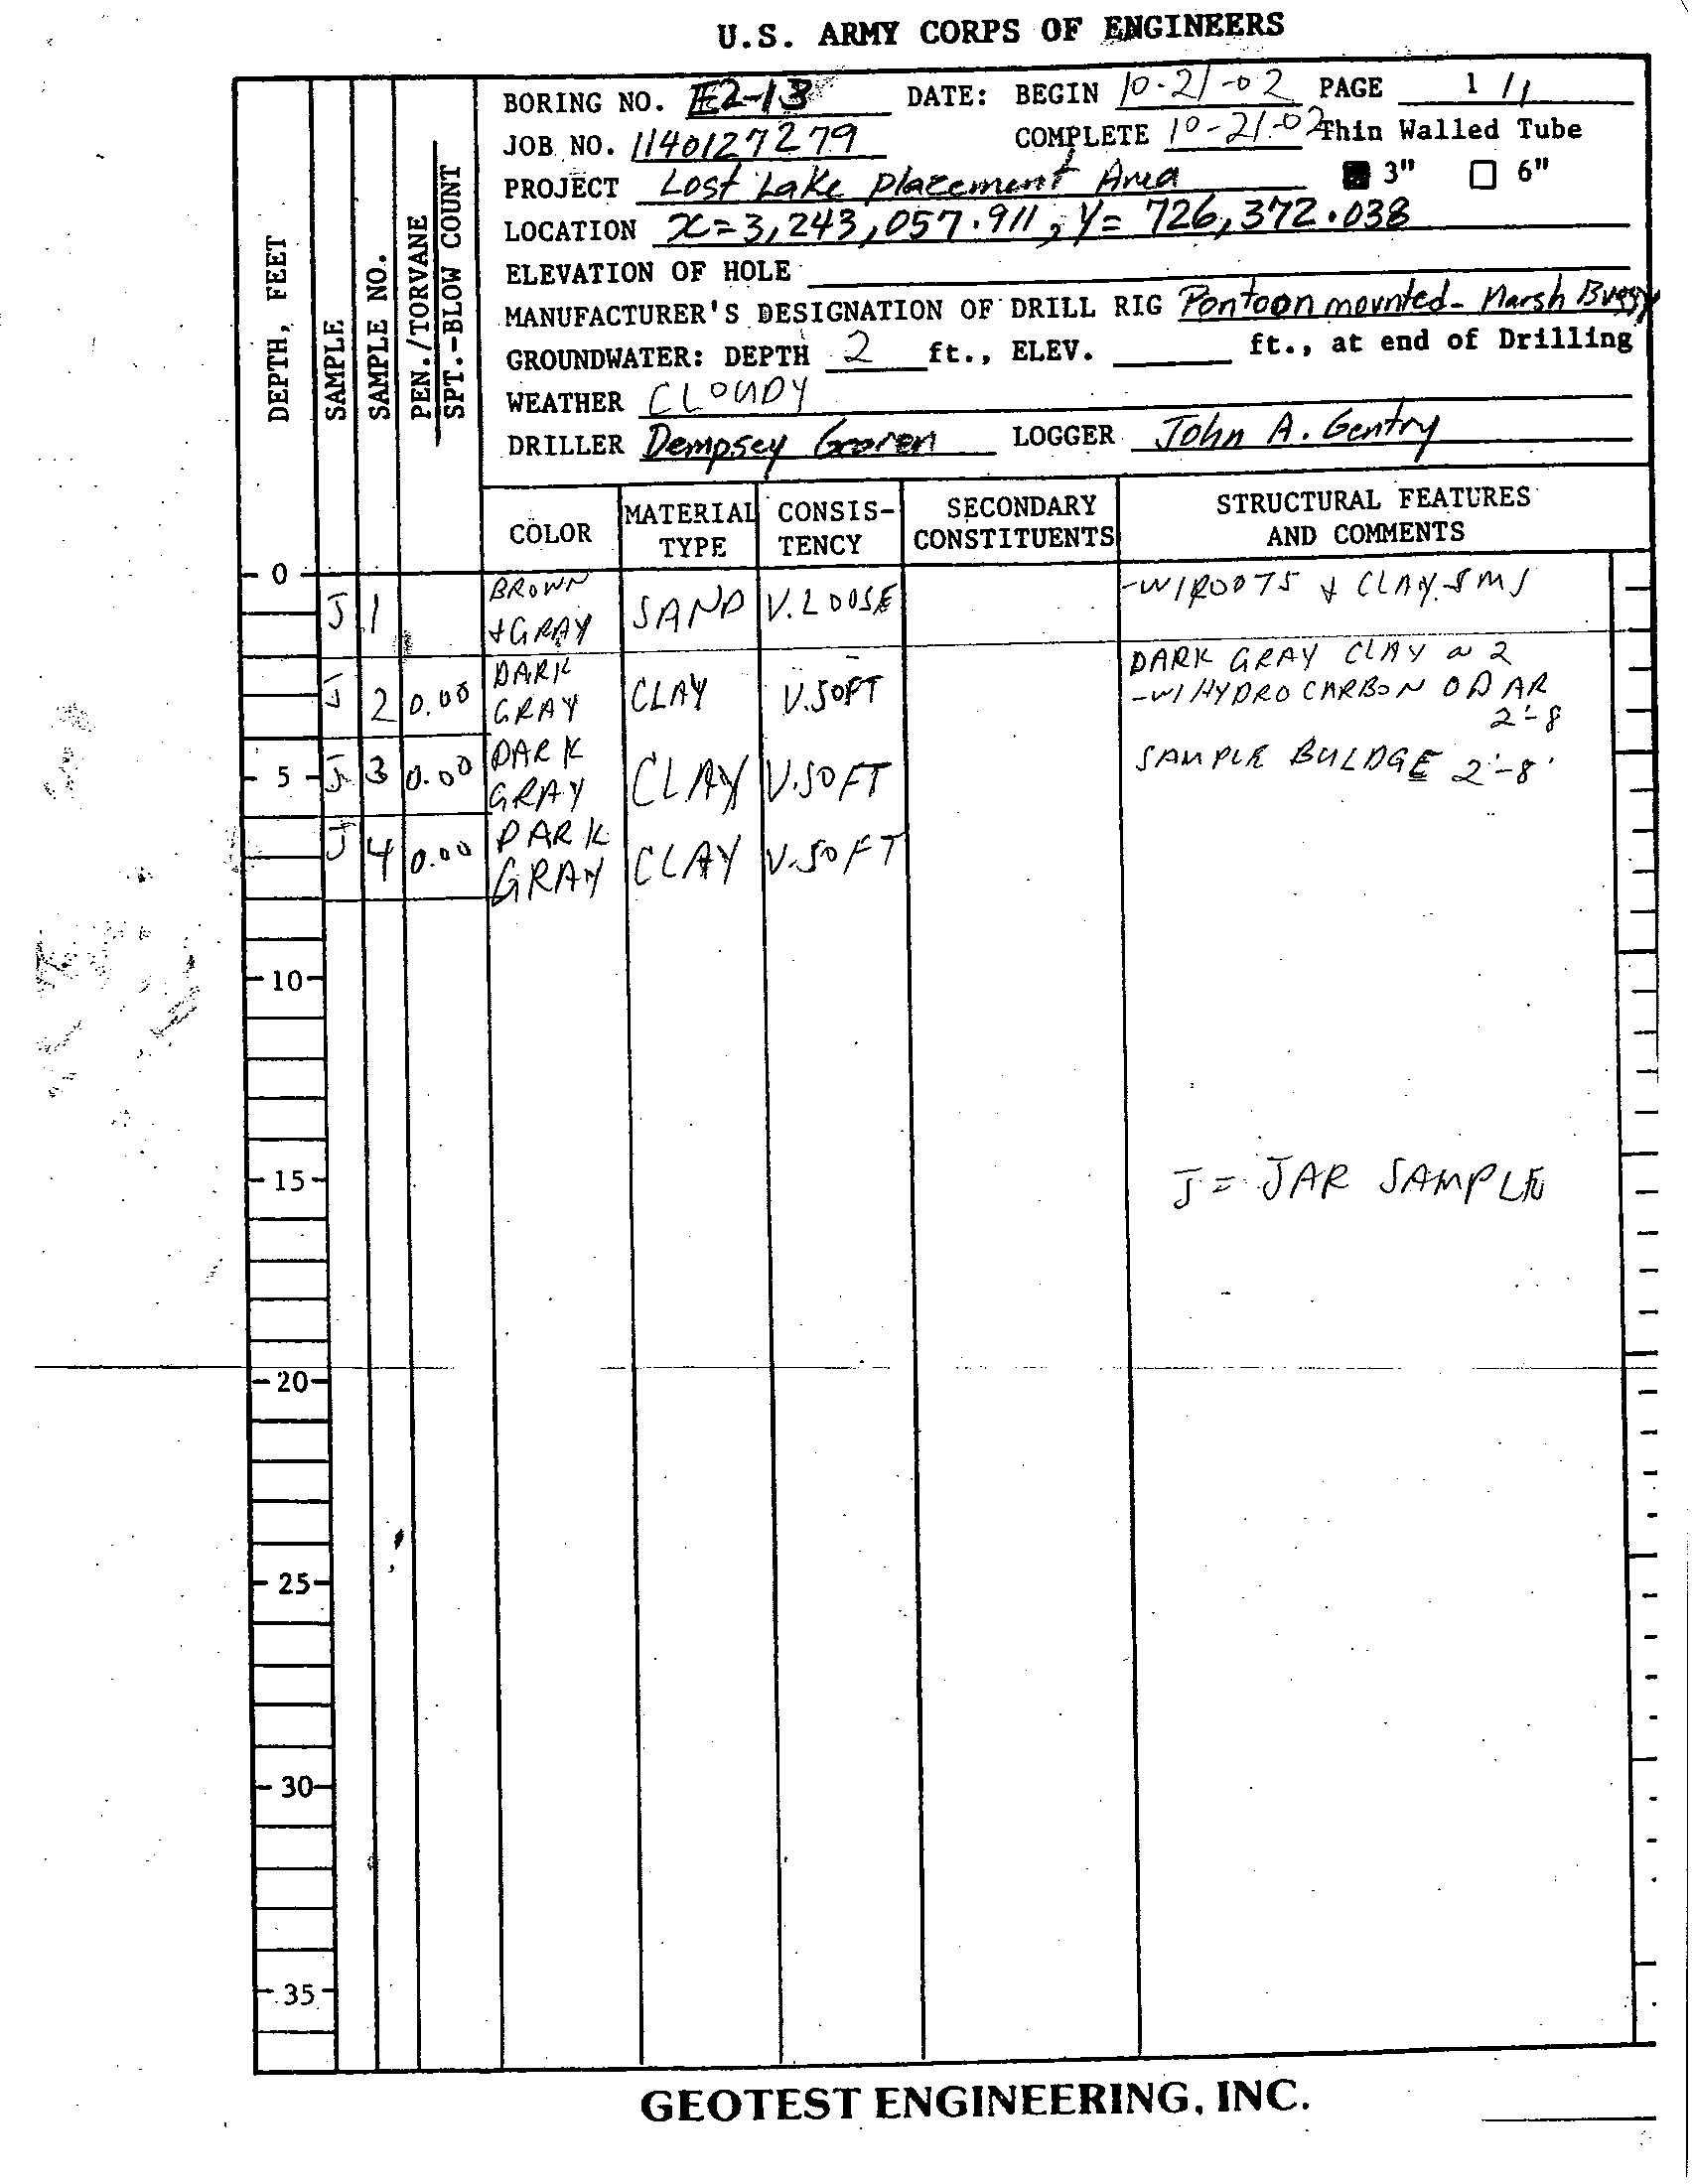 U.S. ARMY CORPS OF ENGINEERS
DEPTH, FEET
SAMPLE
SAMPLE NO.
PEN./TORVANE
SPT.-BLOW COUNT
BORING NO. E2-13 DATE: BEGIN 10-21-02 PAGE 1/1
JOB NO. 1140127279 COMPLETE 10-21-02 Thin Walled Tube
PROJECT Lost Lake Placement Area 3" 6"
LOCATION x=3,243,057.911, y=726,372.038
ELEVATION OF HOLE
MANUFACTURER'S DESIGNATION OF DRILL RIG Pontoon mounted- Marsh Buggy
GROUNDWATER: DEPTH 2 ft., ELEV. ft., at end of Drilling
WEATHER CLOUDY
DRILLER Dempsey LOGGER John A. Gentry
COLOR MATERIAL TYPE CONSIS-TENCY SECONDARY CONSTITUENTS STRUCTURAL FEATURES AND COMMENTS
0
J 1 BROWN +GRAY SAND V.LOOSE -W/ROOTS + CLAY
J 2 0.00 DARK GRAY CLAY V.SOFT DARK GRAY CLAY @ 2
-W/HYDROCARBON ODAR
2'-8
5 J 3 0.00 DARK GRAY CLAY V.SOFT SAMPLE BULDGE 2'-8'
J 4 0.00 DARK GRAY CLAY V.SOFT
10
15 J = JAR SAMPLE
20
25
30
35
GEOTEST ENGINEERING, INC.